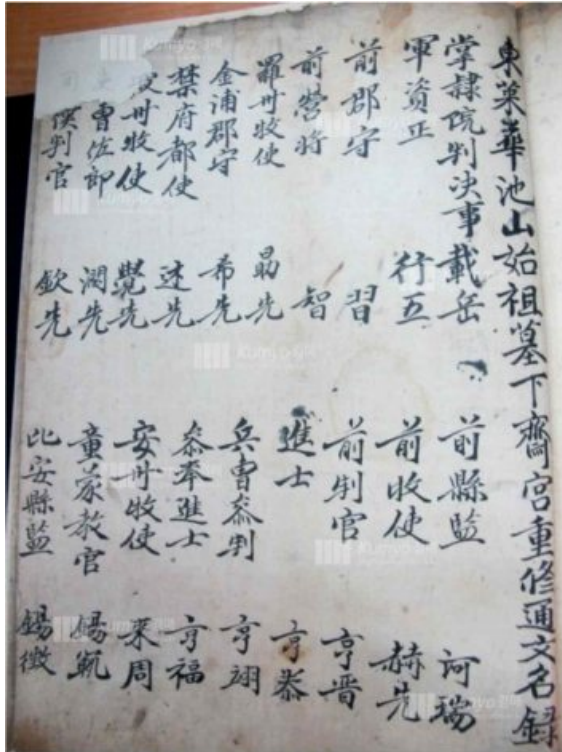 東莱華池山始祖墓下齋宮重修通文名録
掌隷院判决事 載岳
軍資正 行五
前郡守 習
前營將 智
羅州牧使 勗先
金浦郡守 希先
禁府都使 述先
州牧使 覺先
曹佐郎 濶先
僕判官 欽先
前縣監 瑞
前牧使 赫先
前判官 亨晋
進士 亨泰
兵曹叅判 亨翊
叅奉進士 亨福
安州牧使 来周
童蒙教官 錫範
比安縣監 錫徵